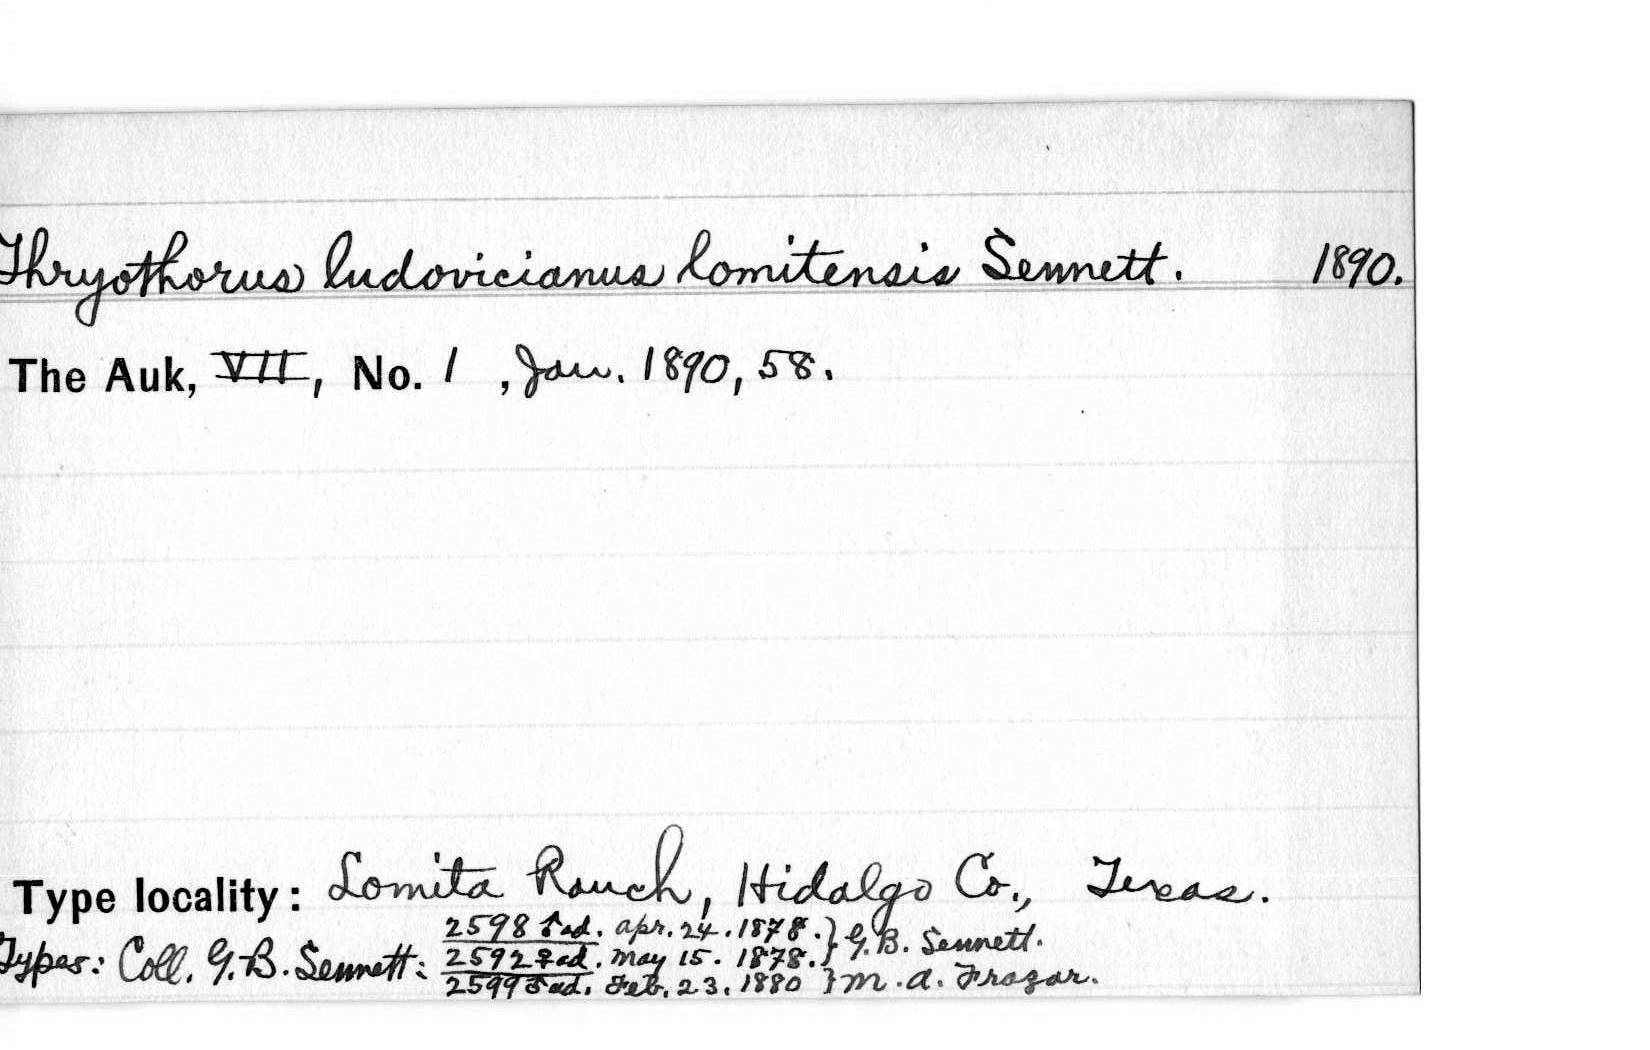 Thryothorus ludovicianus lomitensis Sennett. 1890.
The Auk, VII, No. 1 , Jan. 1890, 58.
Type locality: Lomita Ranch, Hidalgo Co., Texas.
Types: Coll. G. B. Sennett: 2598 ♂ ad. Apr. 24. 1878. } G. B. Sennett.
2592 ♀ ad. May 15. 1878. }
2599 ♂ ad. Feb. 23. 1880 } M. A. Frazar.